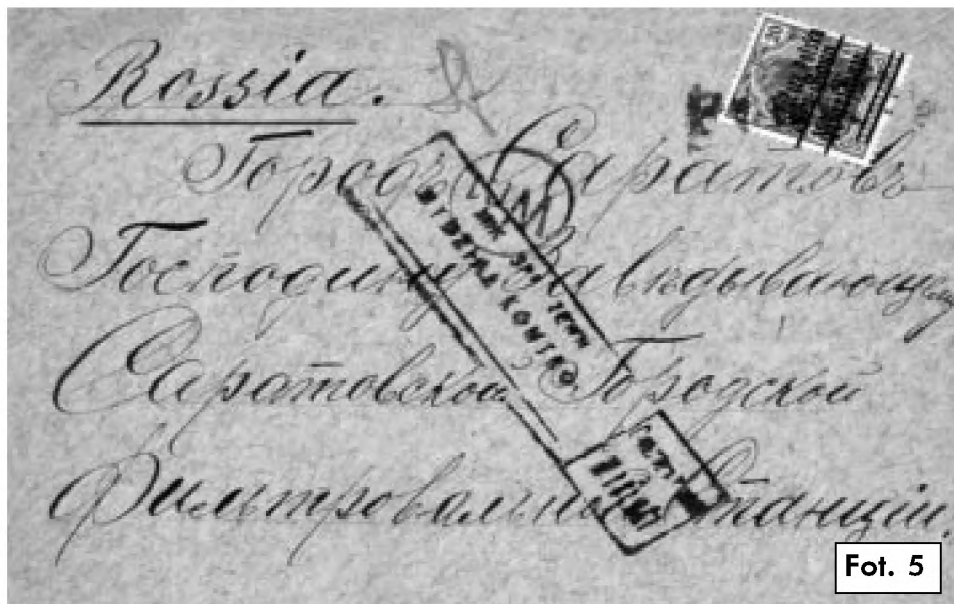 Rossia.
Городъ Саратовъ
Господину Завѣдывающему
Саратовской Городской
Фильтровальной Станціи.
M
Fot. 5